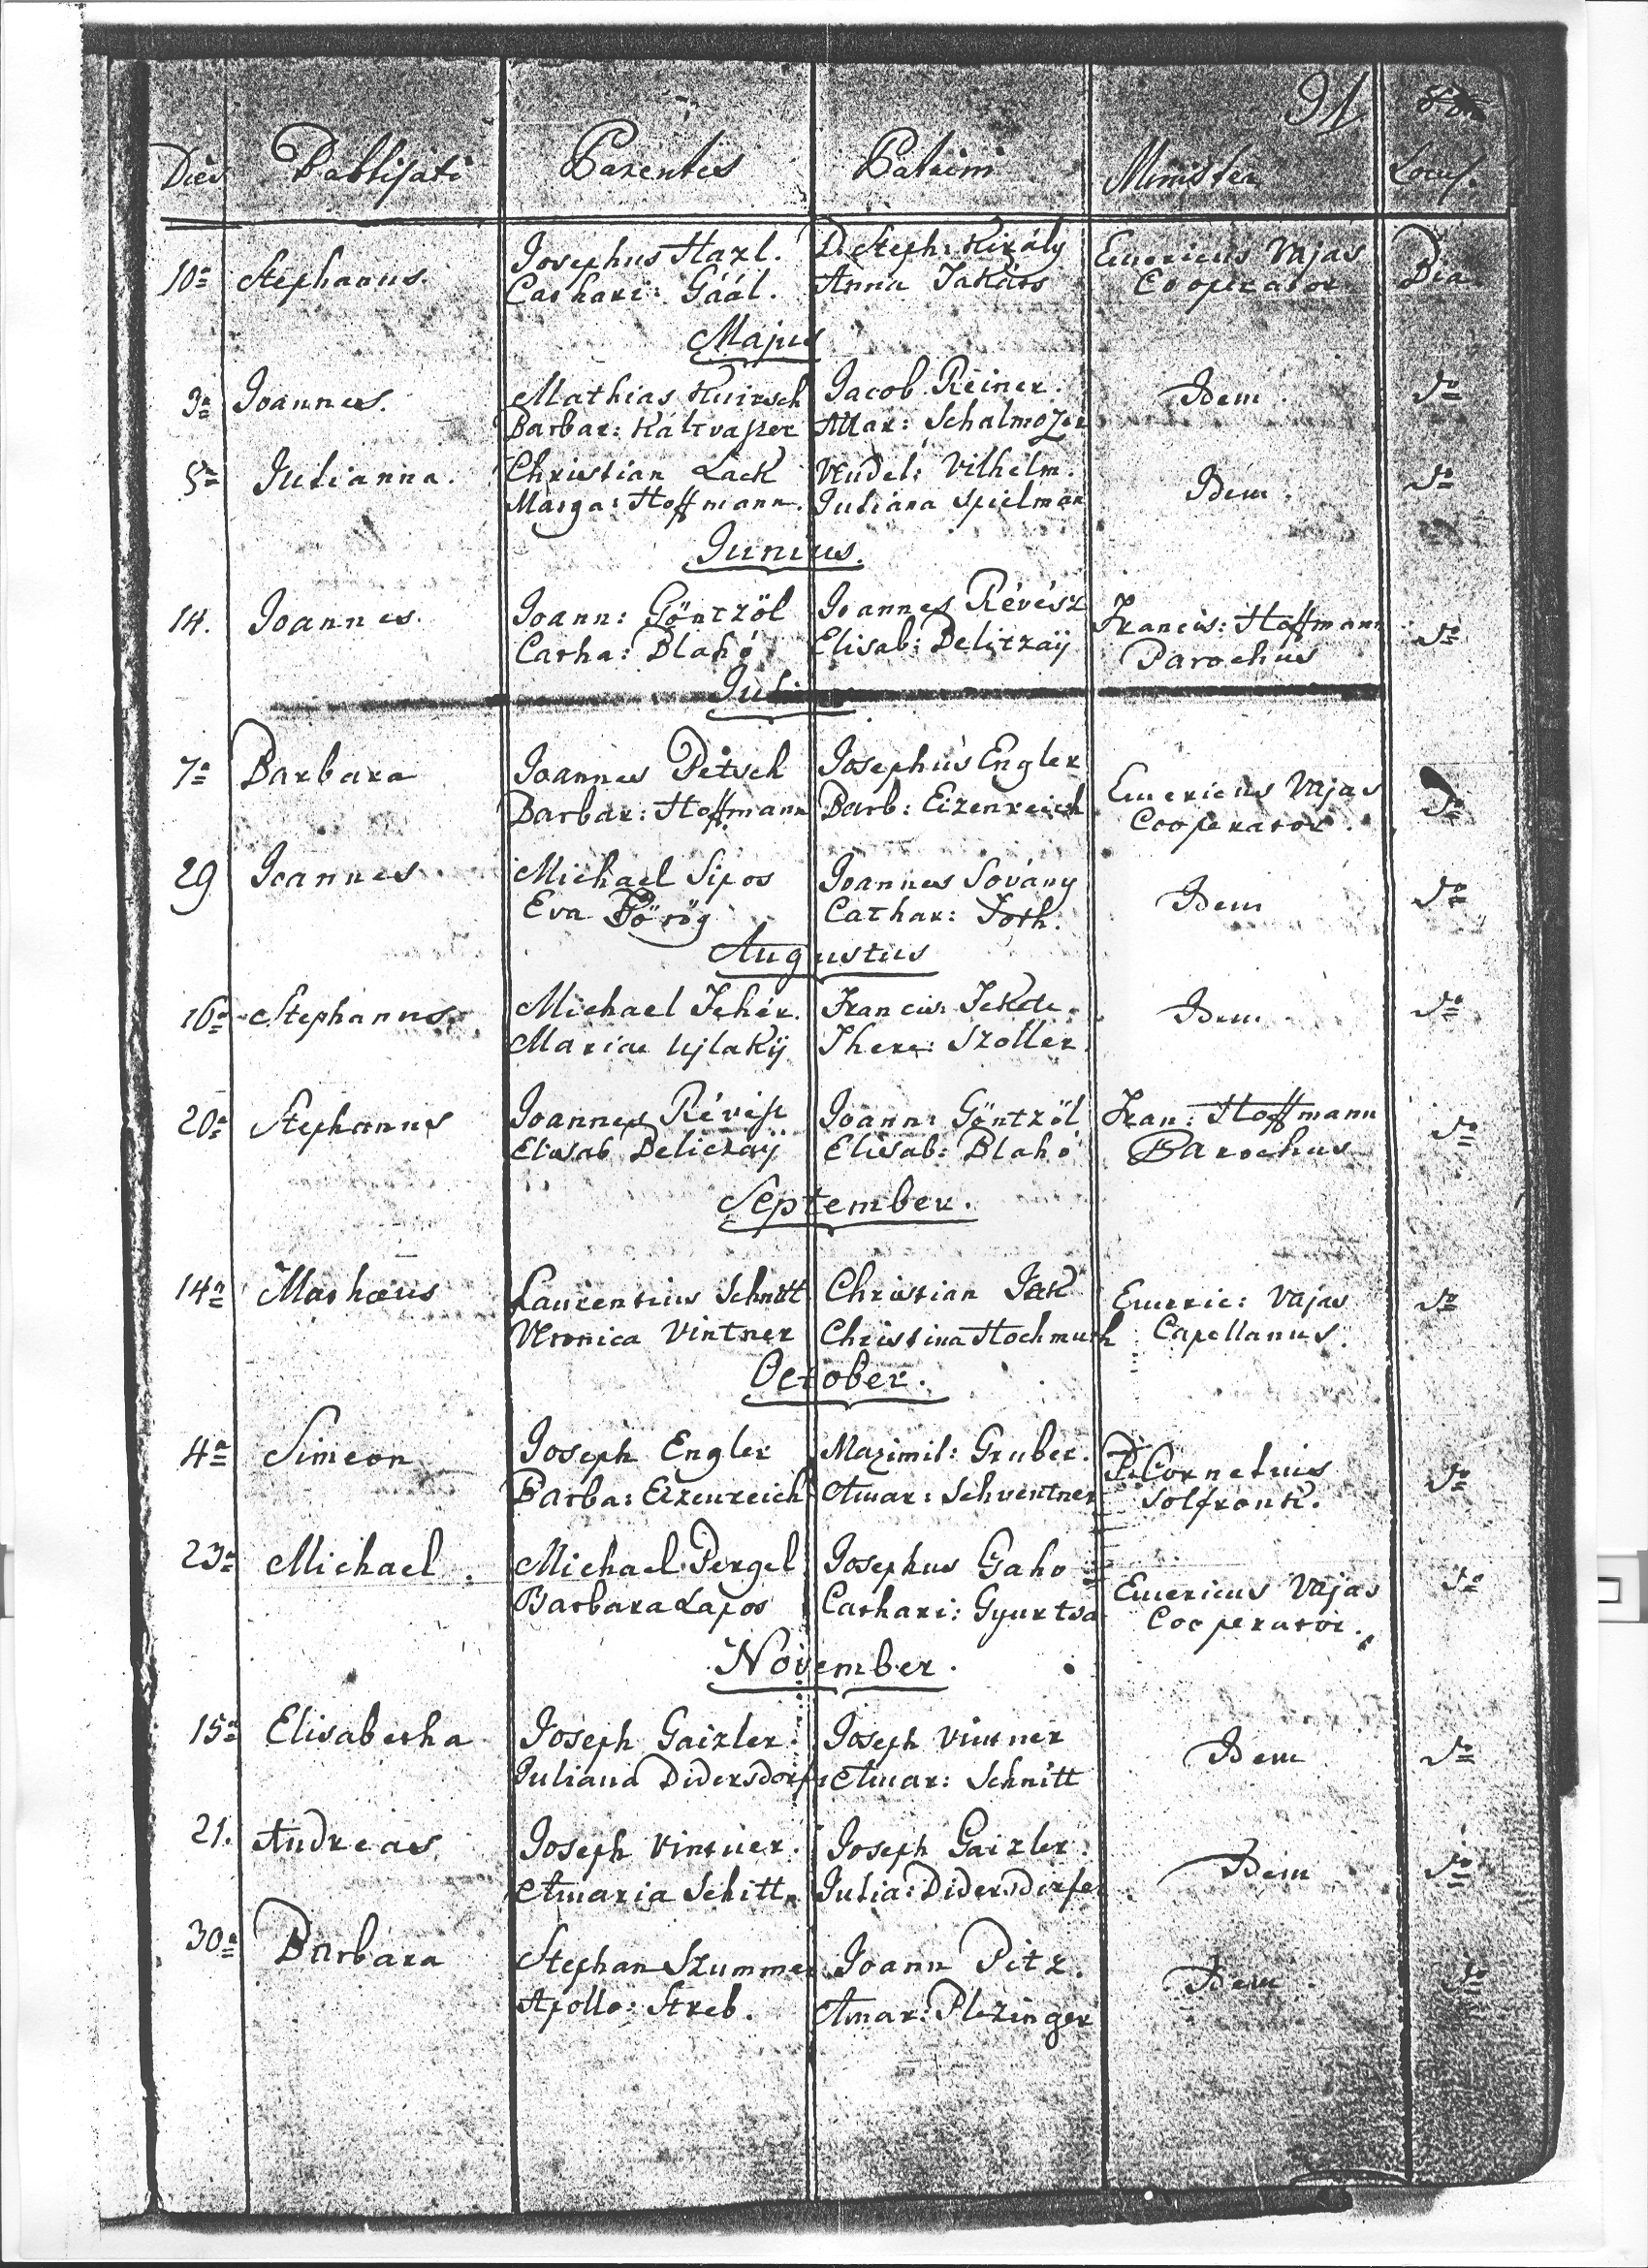 91
Dies Baptisati Parentes Patrini Minister Locus.
10a Stephanus. Josephus Hazl. D. Steph: Király Emericus Vajas Dia.
Cathari: Gáál. Anna Takáts Cooperator
Majus
3a Joannes. Mathias Kuirsch Jacob Reiner. Idem. do
Barbar: Kaltvaszer AMar: Schalmozer
5a Julianna. Christian Lack Vendel: Vilhelm. Idem. do
Marga: Hoffmann. Juliana Spielman
Junius.
14. Joannes. Joann: Göntzöl Joannes Révész Francis: Hoffmann do
Catha: Blahó Elisab: Delitzaÿ Parochus
Juli
7a Barbara Joannes Petsch Josephus Engler Emericus Vajas do
Barbar: Hoffmann Barb: Eizenreich Cooperator.
29 Joannes Michael Sipos Joannes Sovány Idem do
Eva Pörög Cathar: Toth.
Augustus
16a Stephanus. Michael Fehér. Francis: Fekete Idem do
Maria Ujlakÿ There: Szoller
20a Stephanus Joannes Révész Joann: Göntzöl Fran: Hoffmann do
Elisab Deliczaÿ Elisab: Blahó Parochus
September.
14a Mathaeus Laurentius Schnitt Christian Jak Emeric: Vajas do
Veronica Vintner Christina Hochmuth Capellanus.
October.
4a Simeon Joseph Engler Maximil: Gruber. P. Cornelius do
Barba: Eizenreich AMar: Schventner Solfronk.
23a Michael. Michael Pergel Josephus Gaho Emericus Vajas do
Barbara Lapos Cathari: Gyurtsa Cooperator.
November.
15a Elisabetha Joseph Gaizler. Joseph Vintner Idem do
Juliana Didersdorfer AMar: Schnitt
21. Andreas Joseph Vintner. Joseph Gaizler. Idem do
AMaria Schitt Julia: Didersdorfer
30a Barbara Stephan Szummer Joann Pitz. Idem do
Apollo: Streb. AMar: Plezinger